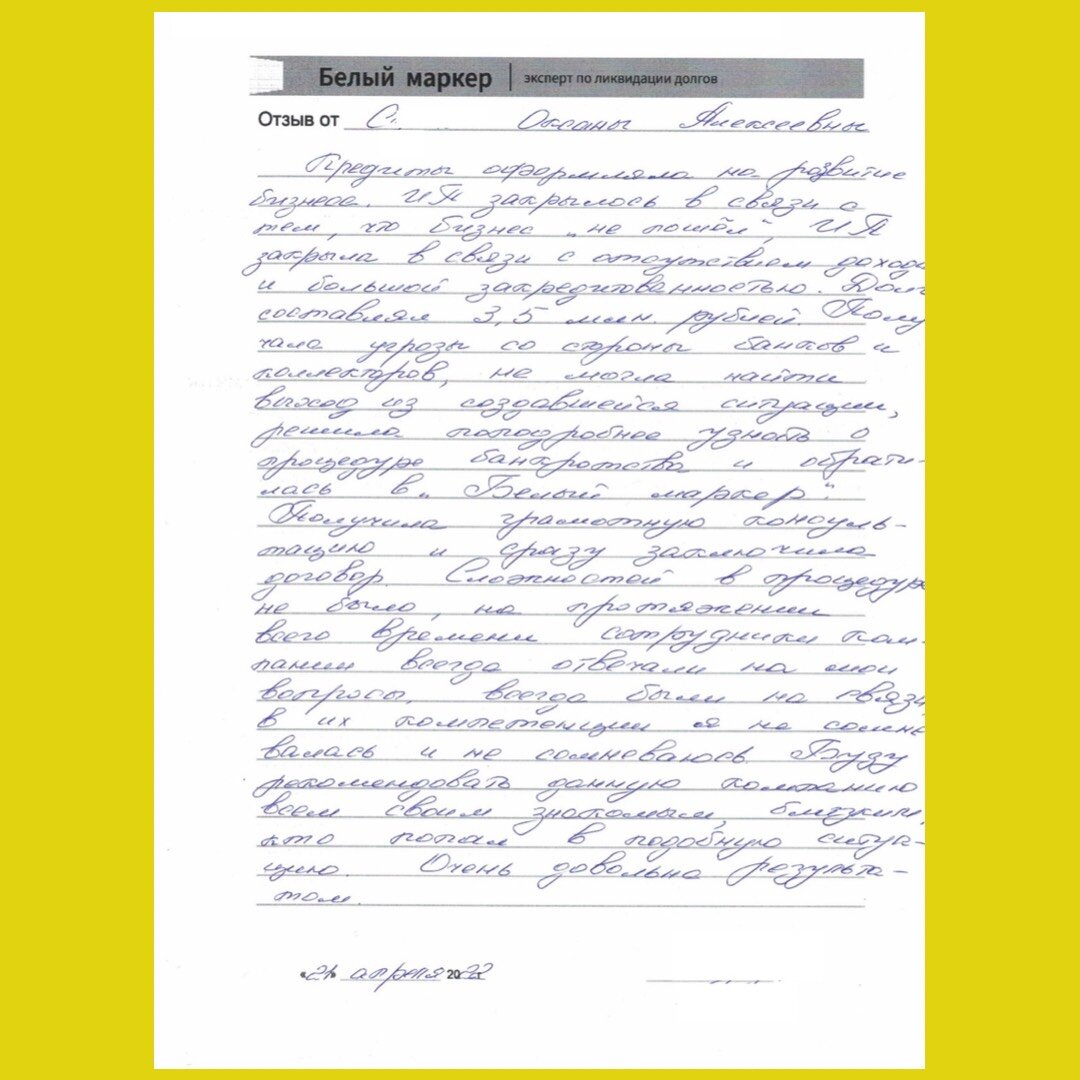 Белый маркер | эксперт по ликвидации долгов
Отзыв от С. Оксаны Алексеевны
Кредиты оформляла на развитие
бизнеса. ИП закрылось в связи с
тем, что бизнес „не пошёл", ИП
закрыла в связи с отсутствием дохода
и большой закредитованностью. Долг
составлял 3,5 млн. рублей. Полу
чала угрозы со стороны банков и
коллекторов, не могла найти
выход из создавшейся ситуации,
решила поподробнее узнать о
процедуре банкротства и обрати-
лась в „Белый маркер".
Получила грамотную консуль-
тацию и сразу заключила
договор. Сложностей в процедуре
не было, на протяжении
всего времени сотрудники ком-
пании всегда отвечали на мои
вопросы, всегда были на связи,
в их компетенции я не сомне
валась и не сомневаюсь. Буду
рекомендовать данную компанию
всем своим знакомым, близким,
кто попал в подобную ситуа-
цию. Очень довольна результа-
том.
«21» апреля 2022 г